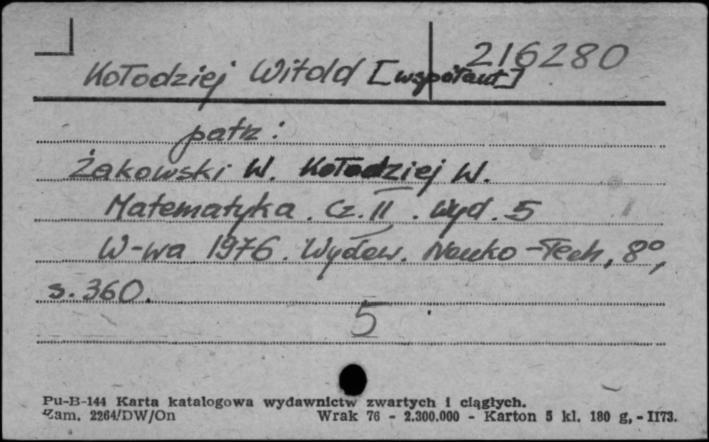 216280
Kołodziej Witold [współaut]
patrz:
Żakowski W. Kołodziej W.
Matematyka. Cz. II. Wyd. 5
W-wa 1976. Wydaw. Nauko-Tech, 8°,
s. 360.
5
Pu-B-144 Karta katalogowa wydawnictw zwartych i ciągłych.
Zam. 2264/DW/On Wrak 76 - 2.300.000 - Karton 5 kl. 180 g, - II73.